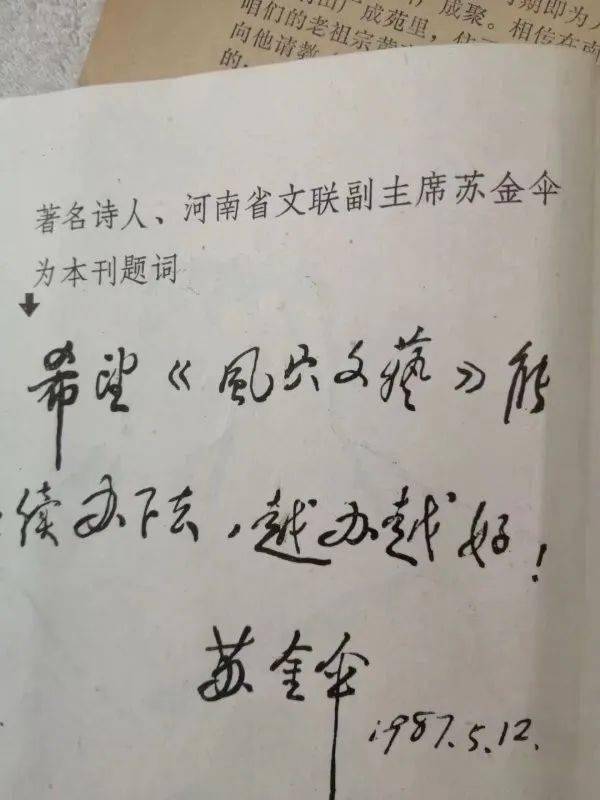 期即为
成苑里,
成聚。相传在
咱们的老祖宗
向他请教
的
著名诗人、河南省文联副主席苏金伞
为本刊题词
希望《風穴文藝》能
续办下去,越办越好!
苏金伞
1987.5.12.